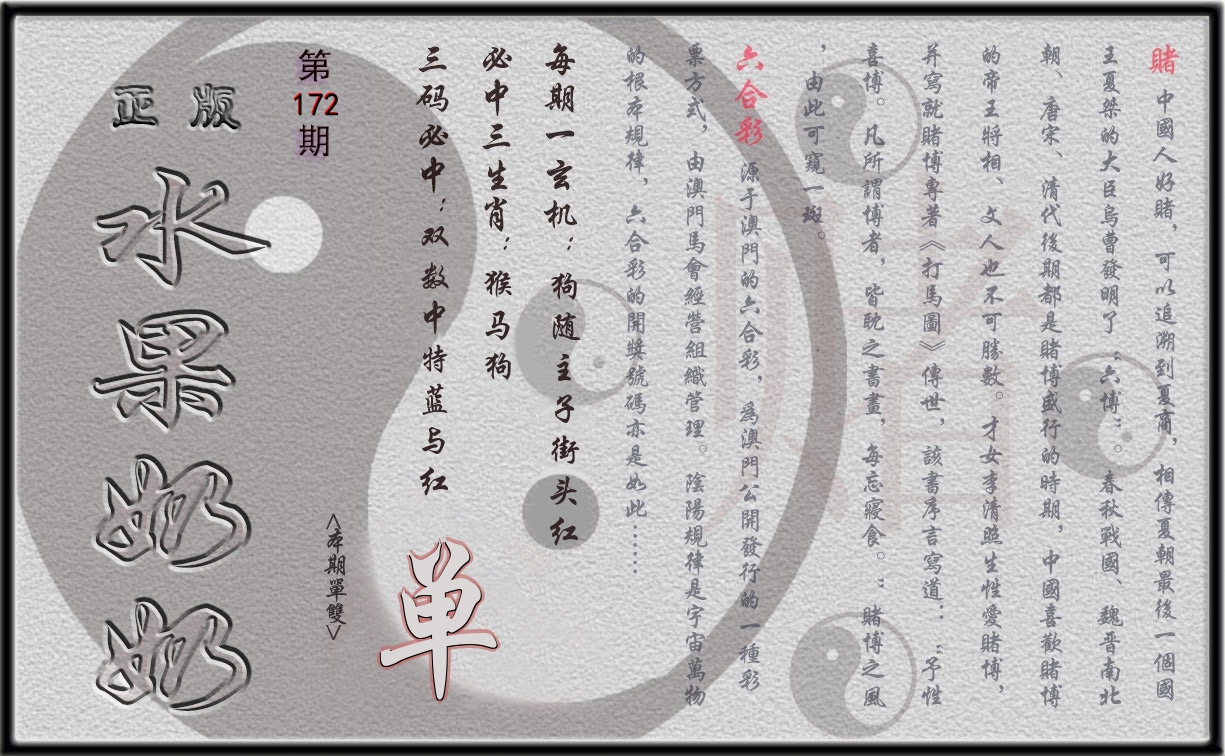 賭 中國人好賭，可以追溯到夏商，相傳夏朝最後一個國
王夏桀的大臣烏曹發明了“六博”。春秋戰國、魏晉南北
朝、唐宋、清代後期都是賭博盛行的時期，中國喜歡賭博
的帝王將相、文人也不可勝數。才女李清照生性愛賭博，
并寫就賭博專著《打馬圖》傳世，該書序言寫道：“予性
喜博。凡所謂博者，皆耽之書畫，每忘寢食。”賭博之風
，由此可窺一斑。
六合彩 源于澳門的六合彩，為澳門公開發行的一種彩
票方式，由澳門馬會經營組織管理。陰陽規律是宇宙萬物
的根本規律，六合彩的開獎號碼亦是如此……
每期一玄机：狗随主子街头红
必中三生肖：猴马狗
三码必中：双数中特蓝与红
单
<本期單雙>
第
172
期
正版
水果奶奶
賭